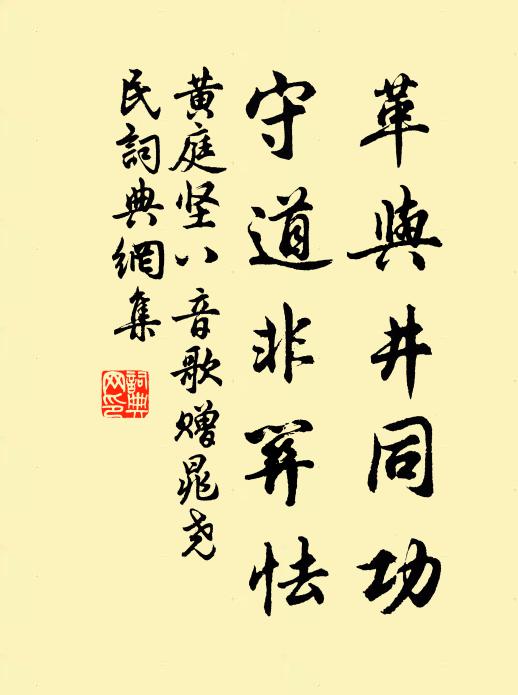 革與井同功
守道非怯
黄庭坚八音歌赠晁尧
民詞典網集
詞典
网印